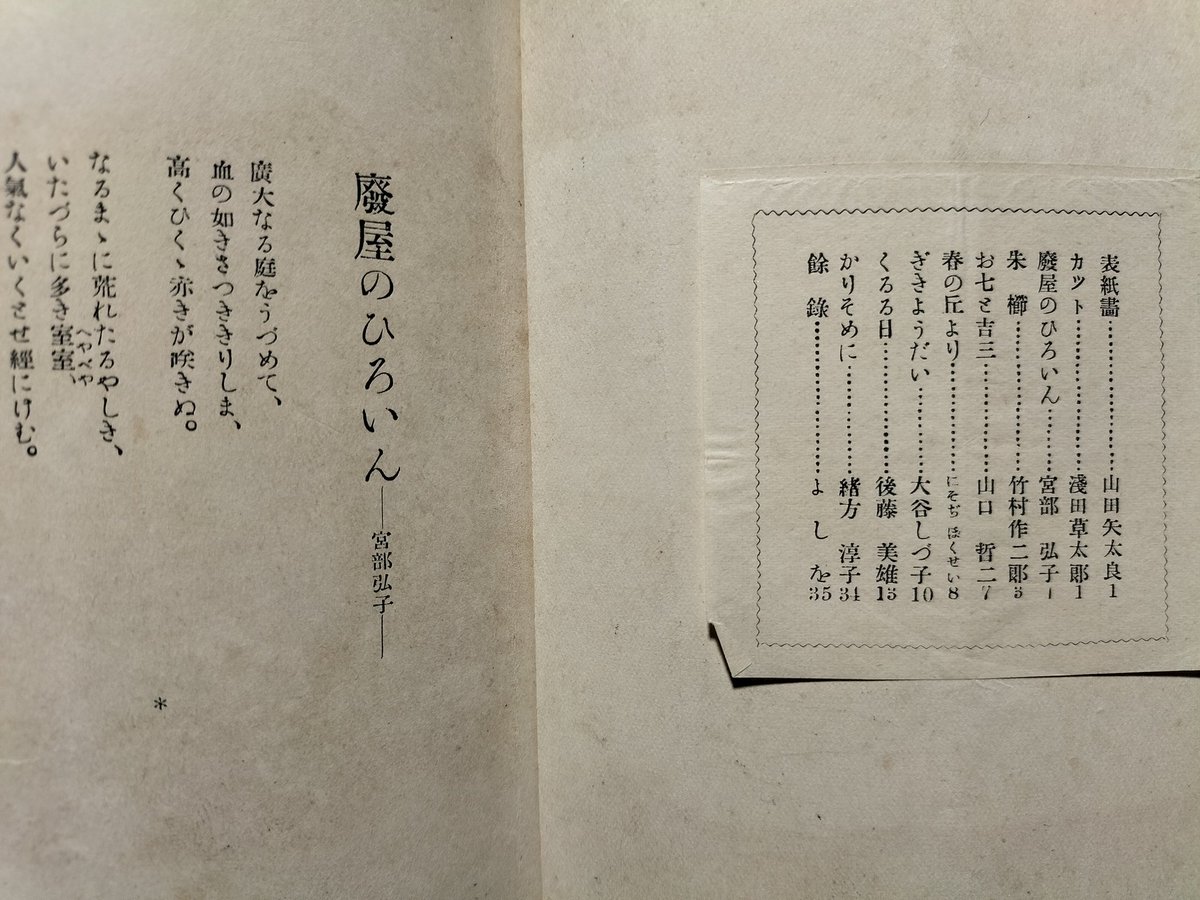 表紙畵…………………山田矢太良 1
カット…………………淺田草太郎 1
廢屋のひろいん…………宮部 弘子 1
朱 櫛…………………竹村作二郎 3
お七と吉三………………山口 哲二 7
春の丘より………………にそぢ ほくせい 8
ぎきようだい……………大谷しづ子 10
くるる日…………………後藤 美雄 13
かりそめに………………緒方 淳子 34
餘 錄…………………よ し を 35
廢屋のひろいん
―宮部弘子―
廣大なる庭をうづめて、
血の如きさつききりしま、
高くひくゝ赤きが咲きぬ。
なるまゝに荒れたるやしき、
いたづらに多き室室、
へやべや
人氣なくいくとせ經にけむ。
*